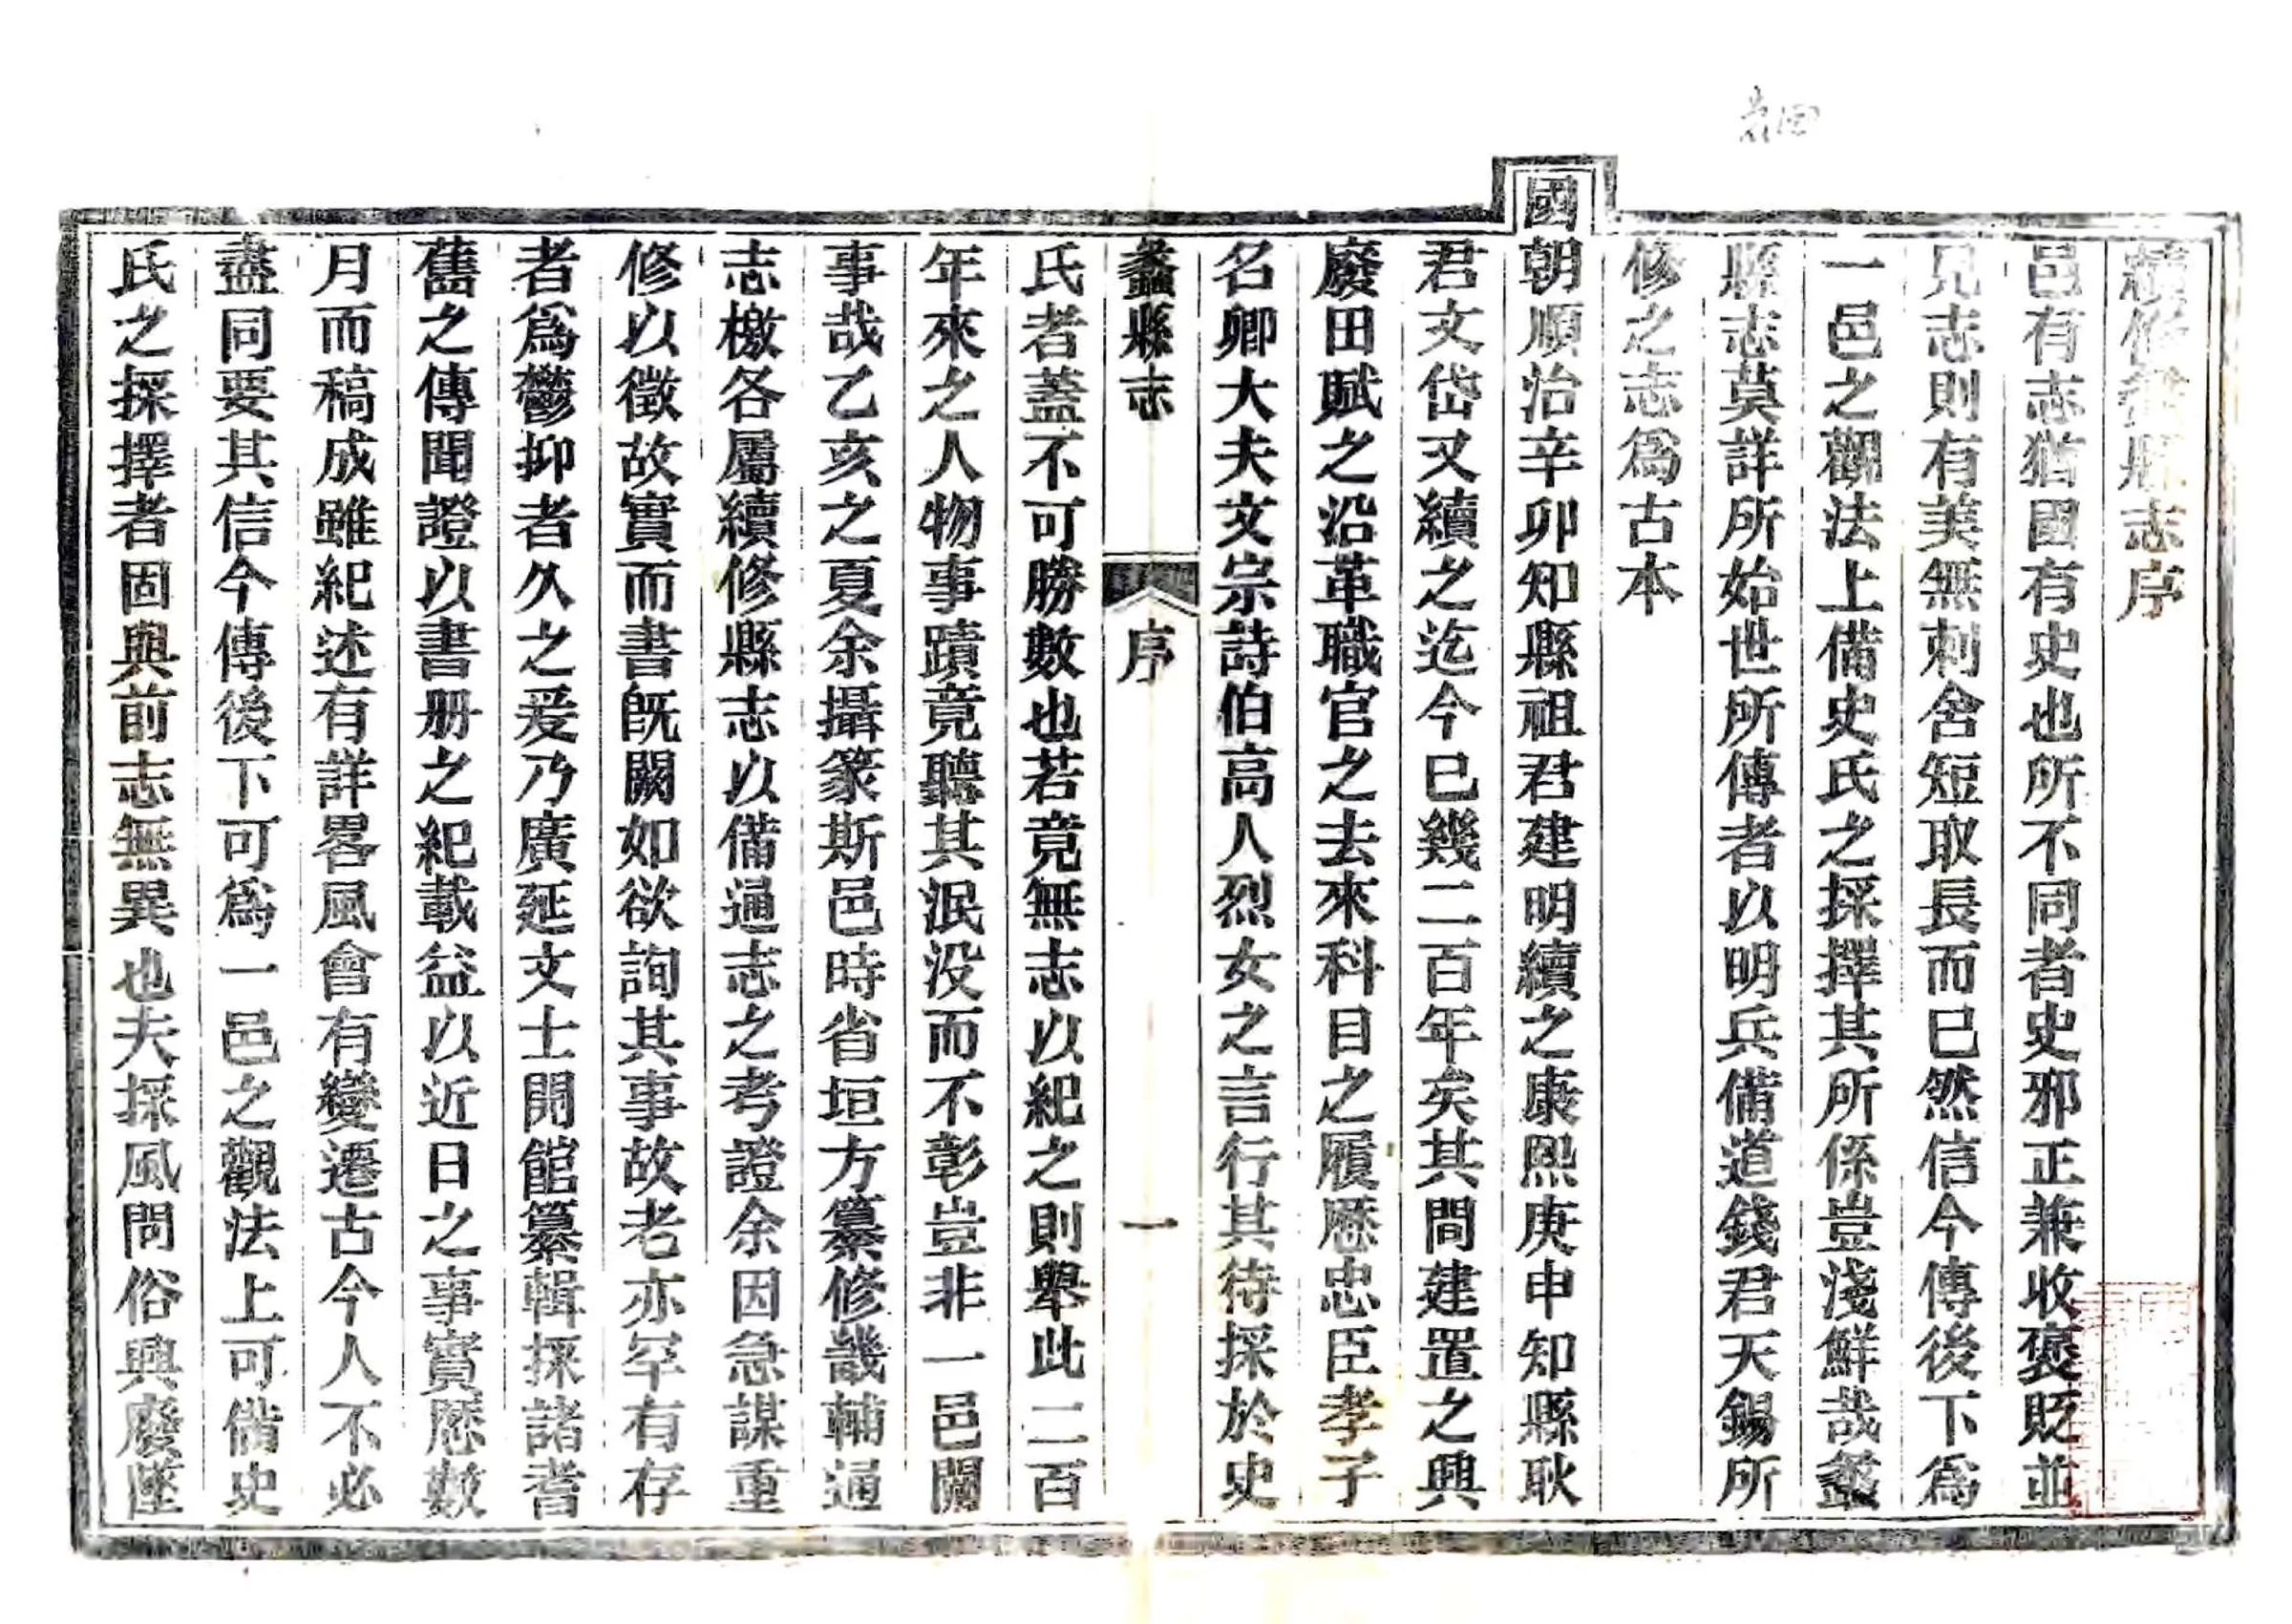 續修蠡縣志序
邑有志猶國有史也所不同者史邪正兼收褒貶並
見志則有美無刺舍短取長而已然信今傳後下爲
一邑之觀法上備史氏之採擇其所係豈淺鮮哉蠡
縣志莫詳所始世所傳者以明兵備道錢君天錫所
修之志爲古本
國朝順治辛卯知縣祖君建明續之康熙庚申知縣耿
君文岱又續之迄今已幾二百年矣其間建置之興
廢田賦之沿革職官之去來科目之履歷忠臣孝子
名卿大夫文宗詩伯高人烈女之言行其待採於史
蠡縣志 序 一
氏者蓋不可勝數也若竟無志以紀之則舉此二百
年來之人物事蹟竟聽其泯没而不彰豈非一邑闕
事哉乙亥之夏余攝篆斯邑時省垣方纂修畿輔通
志檄各屬續修縣志以備通志之考證余因急謀重
修以徵故實而書旣闕如欲詢其事故老亦罕有存
者爲鬱抑者久之爰乃廣延文士開館纂輯採諸耆
舊之傳聞證以書册之紀載益以近日之事實歷數
月而稿成雖紀述有詳畧風會有變遷古今人不必
盡同要其信今傳後下可爲一邑之觀法上可備史
氏之採擇者固與前志無異也夫採風問俗興廢墜